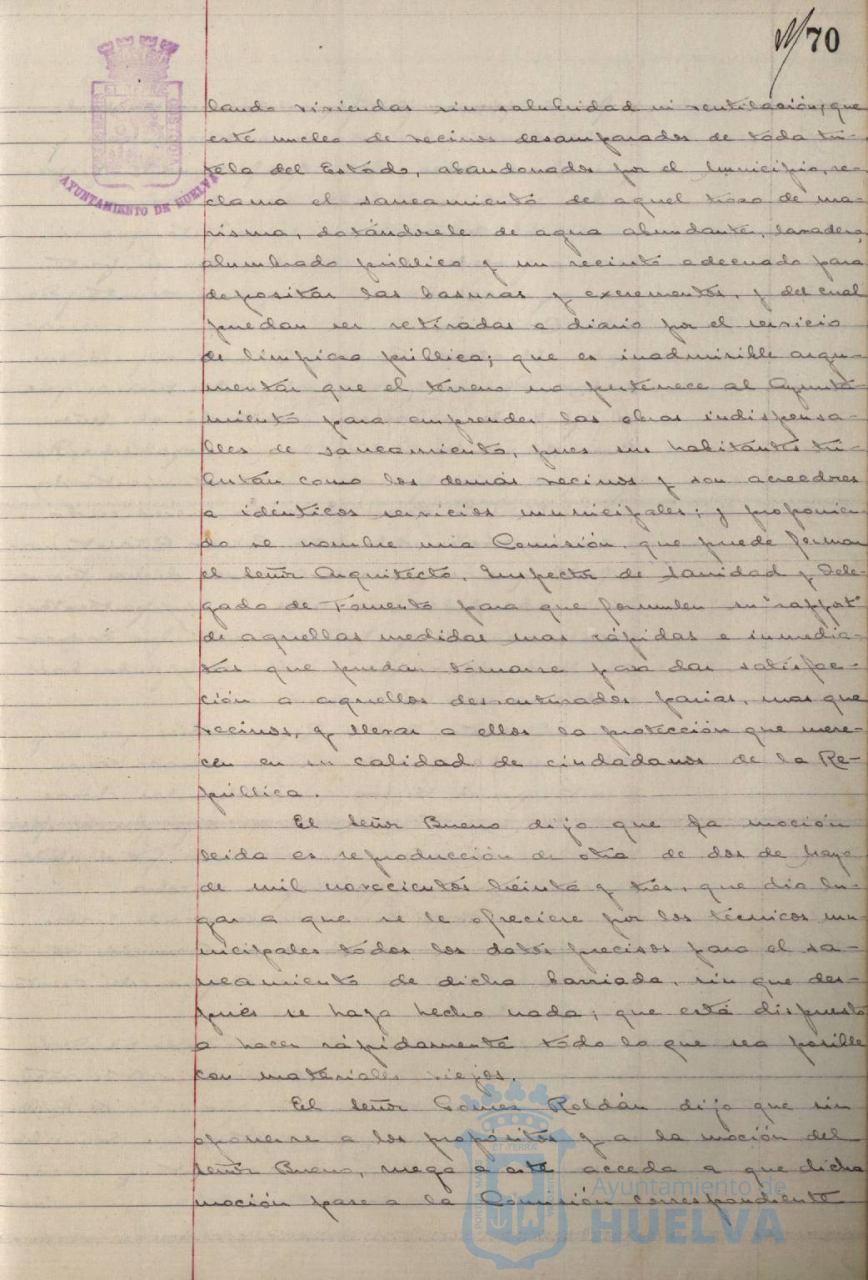 70
AYUNTAMIENTO DE HUELVA
lando viviendas sin salubridad ni ventilación, que
este nucleo de vecinos desamparados de toda tu-
tela del Estado, abandonados por el Municipio, re-
clama el saneamiento de aquel trozo de ma-
risma, dotándosele de agua abundante, lavadero,
alumbrado público y un recinto adecuado para
depositar las basuras y excrementos, y del cual
puedan ser retiradas a diario por el servicio
de limpieza pública; que es inadmisible argu-
mentar que el terreno no pertenece al Ayunta-
miento para emprender las obras indispensa-
bles de saneamiento, pues sus habitantes tri-
butan como los demás vecinos y son acreedores
a idénticos servicios municipales; y proponien-
do se nombre una Comisión, que puede forman
el señor Arquitecto, Inspector de Sanidad y Dele-
gado de Fomento para que formulen su "rapport"
de aquellas medidas mas rápidas e inmedia-
tas que puedan tomarse para dar satisfac-
ción a aquellos desventurados parias, mas que
vecinos, y llevar a ellos la protección que mere-
cen en su calidad de ciudadanos de la Re-
pública.
El señor Bueno dijo que la moción
leida es reproducción de otra de dos de
de mil novecientos treinta y tres, que dio lu-
gar a que se le ofreciese por los técnicos mu-
nicipales todos los datos precisos para el sa-
neamiento de dicha barriada, sin que des-
pués se haya hecho nada; que está dispuesto
a hacer rápidamente todo lo que sea posible
con materiales viejos.
El señor Gómez Roldán dijo que sin
oponerse a los propósitos y a la moción del
señor Bueno, ruega a este acceda a que dicha
moción pase a la Comisión correspondiente
Ayuntamiento de
HUELVA